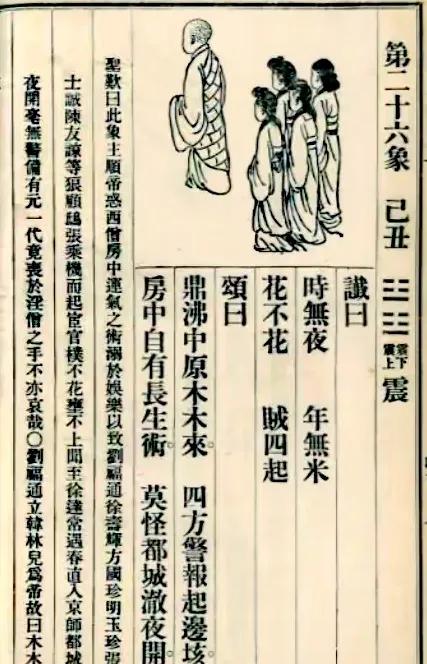 第二十六象 己丑 ☳☳ 震下震上 震
讖曰
時無夜 年無米
花不花 賊四起
頌曰
鼎沸中原木木來 四方警報起邊垓
房中自有長生術 莫怪都城澈夜開
聖歎曰此象主順帝惑西僧房中運氣之術溺於娛樂以致劉福通徐壽輝方國珍明玉珍張
士誠陳友諒等狼顧鴟張乘機而起宦官樸不花壅不上聞至徐達常遇春直入京師都城
夜開毫無警備有元一代竟喪於淫僧之手不亦哀哉〇劉福通立韓林兒爲帝故曰木木